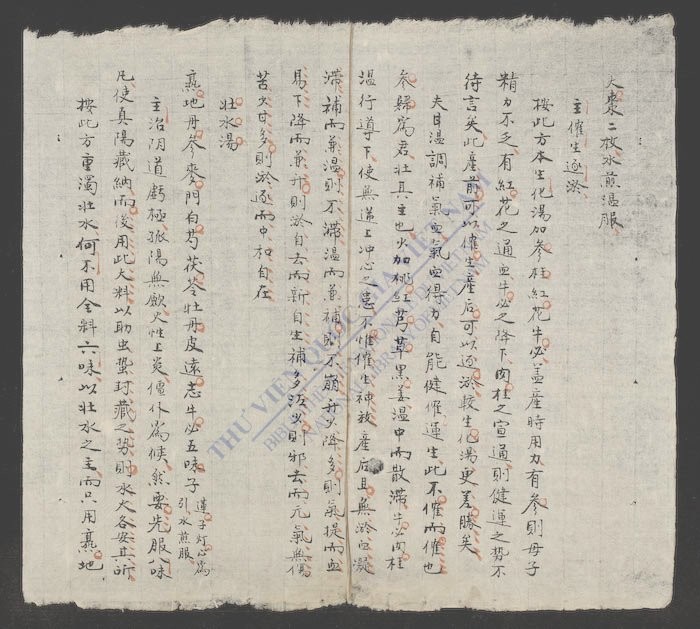 大棗二枚水煎温服
主催生逐淤
按此方本生化湯加參桂紅花牛必盖產時用力有參則母子
精力不乏有紅花之通血牛必之降下肉桂之宣通則健運之势不
待言矣此產前可以催生產后可以逐淤較生化湯更差勝矣
夫甘温調補氣血氣血得力自能健催運生此不催而催也
參歸為君壮其主也少加桃紅芎草黑姜温中而散滞牛必肉桂
温行導下使無逆上冲心之患不惟催生神效產后且無淤血凝
滞補而兼温則不滞温而兼補則不崩升少降多則氣提而血
易下降而兼升則淤自去而新自生補多泻少則邪去而元氣無傷
苦少甘多則淤逐而中和自在
壮水湯
熟地丹參麥門白芍茯苓牡丹皮遠志牛必五味子 蓮子灯心為
引水煎服
主治阴道虧極孤陽無歛火性上炎僵仆為候然要先服八味
凡使真陽藏納而後用此大料以助虫蟄封藏之势則水火各安其所
按此方重濁壮水何不用全料六味以壮水之主而只用熟地
THƯ VIỆN QUỐC GIA VIỆT NAM
BIBLIOTHÈQUE NATIONALE DU VIETNAM
NATIONAL LIBRARY OF VIETNAM